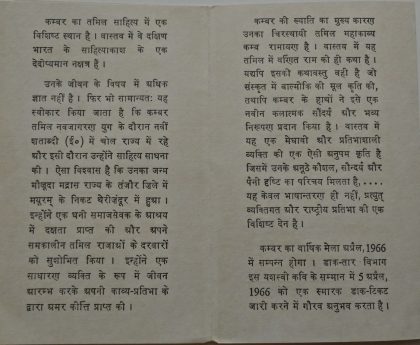 कम्बर का तमिल साहित्य में एक
विशिष्ट स्थान है । वास्तव में वे दक्षिण
भारत के साहित्याकाश के एक
देदीप्यमान नक्षत्र है ।
उनके जीवन के विषय में अधिक
ज्ञात नहीं है । फिर भी सामान्यतः यह
स्वीकार किया जाता है कि कम्बर
तमिल नवजागरण युग के दौरान नवीं
शताब्दी (ई०) में चोल राज्य में रहे
और इसी दौरान उन्होंने साहित्य साधना
की । ऐसा विश्वास है कि उनका जन्म
मौजूदा मद्रास राज्य के तंजौर ज़िले में
मयूरम् के निकट थैरीज़ंदूर में हुआ ।
इन्होंने एक धनी समाजसेवक के आश्रय
में दक्षता प्राप्त की और अपने
समकालीन तमिल राजाओं के दरबारों
को सुशोभित किया । इन्होंने एक
साधारण व्यक्ति के रूप में जीवन
आरम्भ करके अपनी काव्य-प्रतिभा के
द्वारा अमर कीर्त्ति प्राप्त की ।
कम्बर की ख्याति का मुख्य कारण
उनका चिरस्थायी तमिल महाकाव्य
कम्ब रामायण है । वास्तव में यह
तमिल में वर्णित राम की ही कथा है ।
यद्यपि इसकी कथावस्तु वही है जो
संस्कृत में वाल्मीकि की मूल कृति की,
तथापि कम्बर के हाथों ने इसे एक
नवीन कलात्मक सौंदर्य और भव्य
निरूपण प्रदान किया है । वास्तव में
यह एक मेधावी और प्रतिभाशाली
व्यक्ति की एक ऐसी अनुपम कृति है
जिसमें उनके अनूठे कौशल, सौन्दर्य और
पैनी दृष्टि का परिचय मिलता है,....
यह केवल भाषान्तरण ही नहीं, प्रत्युत्
व्यक्तिगत और राष्ट्रीय प्रतिभा की एक
विशिष्ट देन है ।
कम्बर का वार्षिक मेला अप्रैल,1966
में सम्पन्न होगा । डाक-तार विभाग
इस यशस्वी कवि के सम्मान में 5 अप्रैल,
1966 को एक स्मारक डाक-टिकट
जारी करने में गौरव अनुभव करता है ।